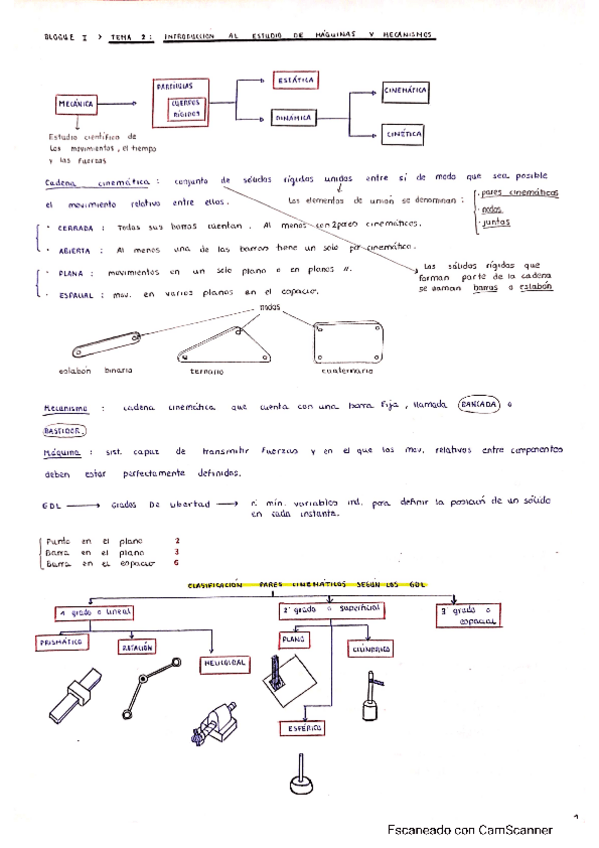 BLOQUE I > TEMA 2: INTRODUCCIÓN AL ESTUDIO DE MÁQUINAS Y MECANISMOS
MECÁNICA
PARTÍCULAS
CUERPOS RÍGIDOS
ESTÁTICA
DINÁMICA
CINEMÁTICA
CINÉTICA
Estudio científico de
los movimientos, el tiempo
y las fuerzas
Cadena cinemática: conjunto de sólidos rígidos unidos entre sí de modo que sea posible
el movimiento relativo entre ellos.
Los elementos de unión se denominan:
· pares cinemáticos
· nodos
· juntas
· CERRADA: Todas sus barras cuentan. Al menos con 2 pares cinemáticos.
· ABIERTA: Al menos una de las barras tiene un solo par cinemático.
· PLANA: movimientos en un solo plano o en planos //.
· ESPACIAL: mov. en varios planos en el espacio.
Los sólidos rígidos que
forman parte de la cadena
se llaman barras o eslabón
nodos
eslabón binario
ternario
cuaternario
Mecanismo: cadena cinemática que cuenta con una barra fija, llamada BANCADA o
BASTIDOR.
Máquina: sist. capaz de transmitir fuerzas y en el que los mov. relativos entre componentes
deben estar perfectamente definidos.
GDL → Grados De Libertad → nº mín. variables ind. para definir la posición de un sólido
en cada instante.
Punto en el plano 2
Barra en el plano 3
Barra en el espacio 6
CLASIFICACIÓN PARES CINEMÁTICOS SEGÚN LOS GDL
1 grado o lineal
2º grado o superficial
3 grado o espacial
PRISMÁTICO
ROTACIÓN
HELICOIDAL
PLANO
CILÍNDRICO
ESFÉRICO
1
Escaneado con CamScanner